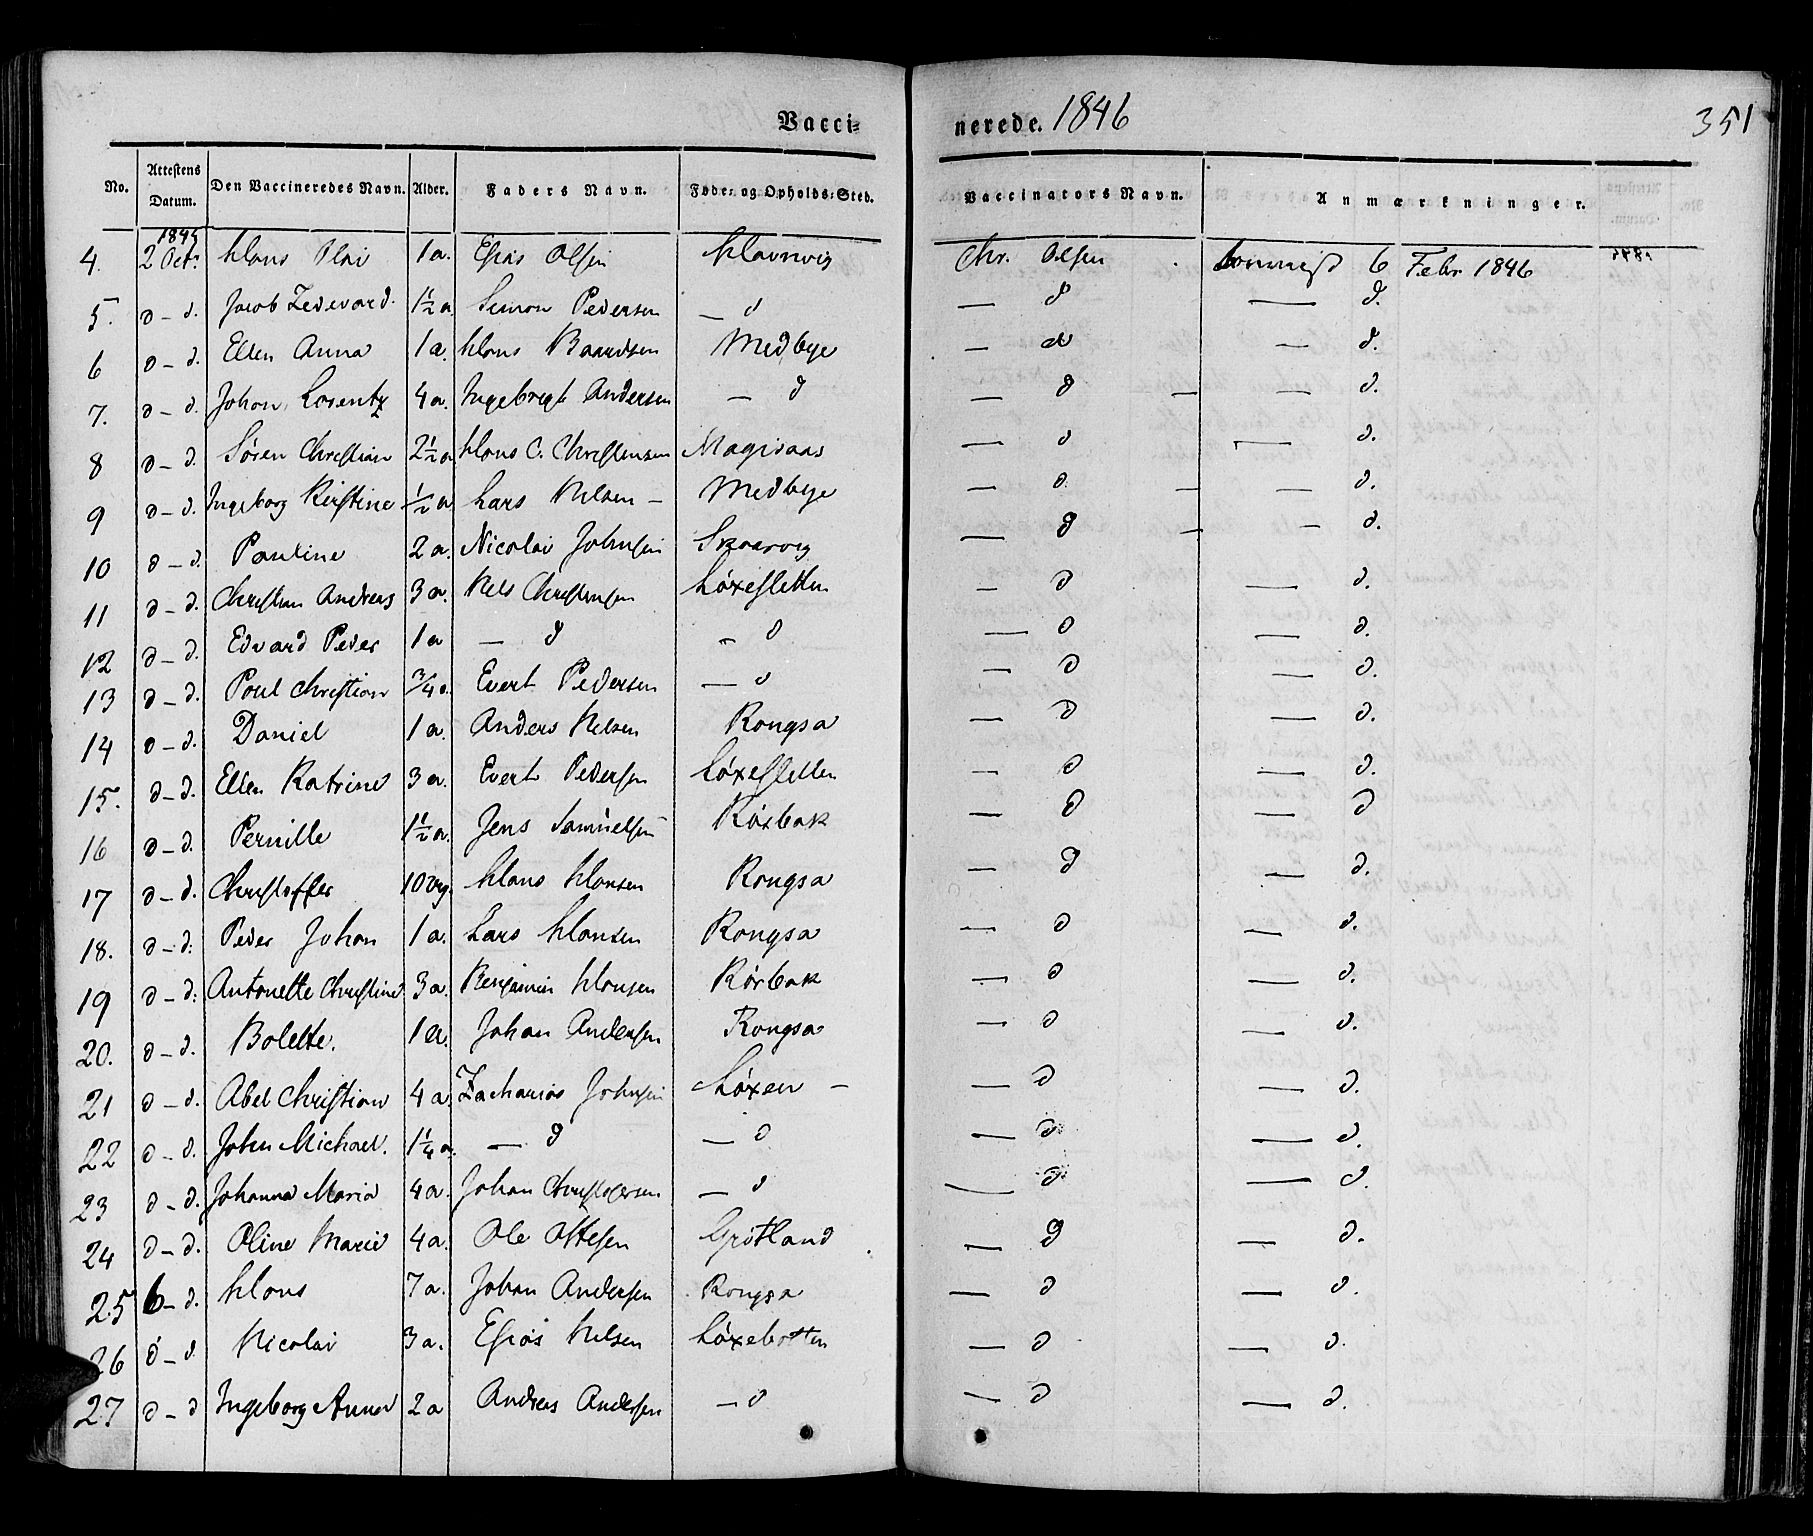 Vacci= nerede. 1846 351
No. Attestens Datum. Den Vaccineredes Navn. Alder. Faders Navn. Føde- og Opholds-Sted. Vaccinators Navn. Anmærkninger.
1845
4. 2 Octr. Hans Olai 1 a. Esias Olsen Havnvig Chr. Olsen 6 Febr 1846
5. d - d. Jacob Zedevard. 1½ a. Simon Pedersen — d — d — d.
6 d - d. Ellen Anna 1 a. Hans Baardsen Medbye — d — d.
7. d - d. Johan Lorentz 4 a. Ingebregt Andersen — d — d — d.
8 d - d. Søren Christian 2½ a Hans C. Christensen — d — d.
9 d - d. Ingeborg Kirstine ½ a Lars Nelsen — Medbye — d — d.
10 d - d. Pauline 2 a. Nicolai Johnsen Skaarvig — d — d.
11 d - d. Christian Andreas 3 a. Nels Christensen Løxesletten — d — d.
12 d - d. Edvard Peder 1 a — d — d — d — d.
13 d - d. Poul Christian ¾ a. Evert Pedersen — d — d — d.
14 d - d. Daniel 1 a. Anders Nelsen Rongsa — d — d.
15. d - d. Ellen Katrine 3 a. Evert Pedersen Løxesletten — d — d.
16 d - d. Pernille 1½ a. Jens Samuelsen Rørbak — d — d
17 d - d. Christoffer 10 Hans Hansen Rongsa — d — d.
18. d - d. Peder Johan 1 a. Lars Hansen Rongsa — d — d.
19 d - d. Antonette Christine 3 a. Benjamin Hansen Rørbak — d — d.
20. d - d. Bolette. 1 a. Johan Andersen Rongsa — d — d.
21 d - d. Abel Christian 4 a Zacharias Johnsen Løxen — — d — d.
22 d - d. John Michael. 1¼ a. — d — d — d — d.
23 d - d. Johanna Maria 4 a. Johan Christophersen — d — d — d.
24 d - d. Oline Marie 4 a. Ole Ottesen Grøtland — d — d.
25 6 - d. Hans 7 a. Johan Andersen Rongsa — d — d.
26 d - d Nicolai 3 a. Esias Nelsen Løxebotten — d — d.
27 d - d Ingeborg Anna 2 a Andreas Andersen — d — d — d.